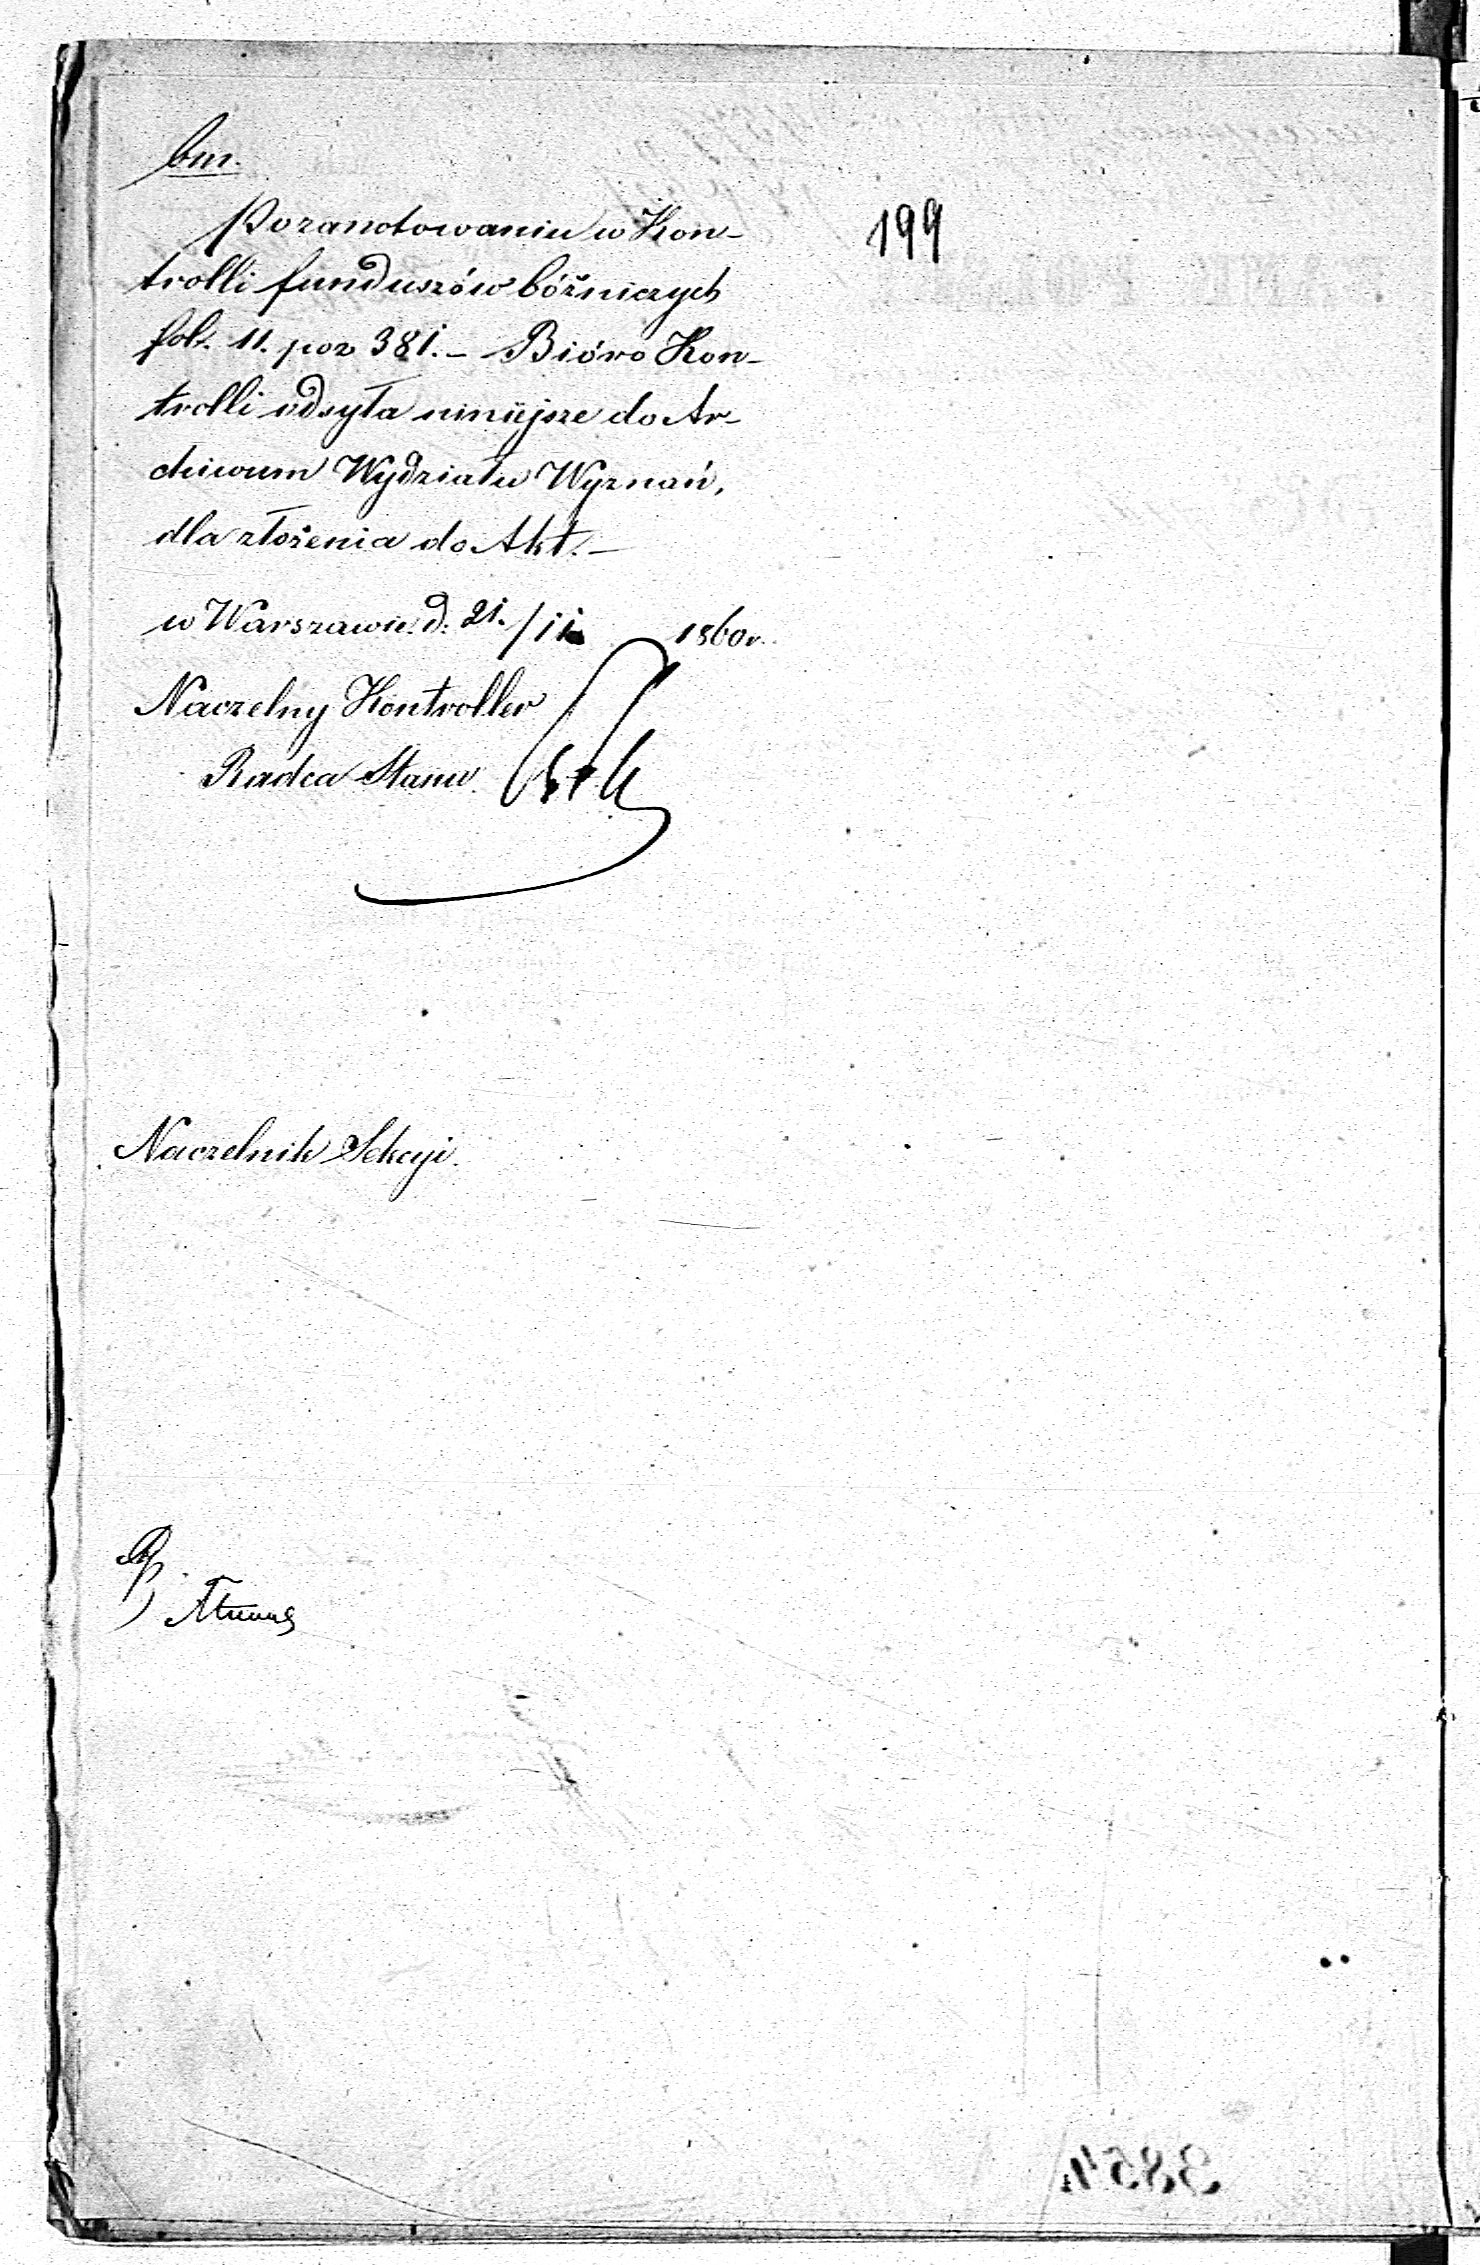 bm.
Pozanotowaniu w Kon-
199
trolli funduszów bóżniczych
fol. 11. poz 381. – Bióro Kon-
trolli odsyła niniejsze do Ar-
chiwum Wydziału Wyznań,
dla złożenia do Akt. –
w Warszawie. d. 21. /11 1860 r.
Naczelny Kontroller
Radca Stanu.
Naczelnik Sekcyi.